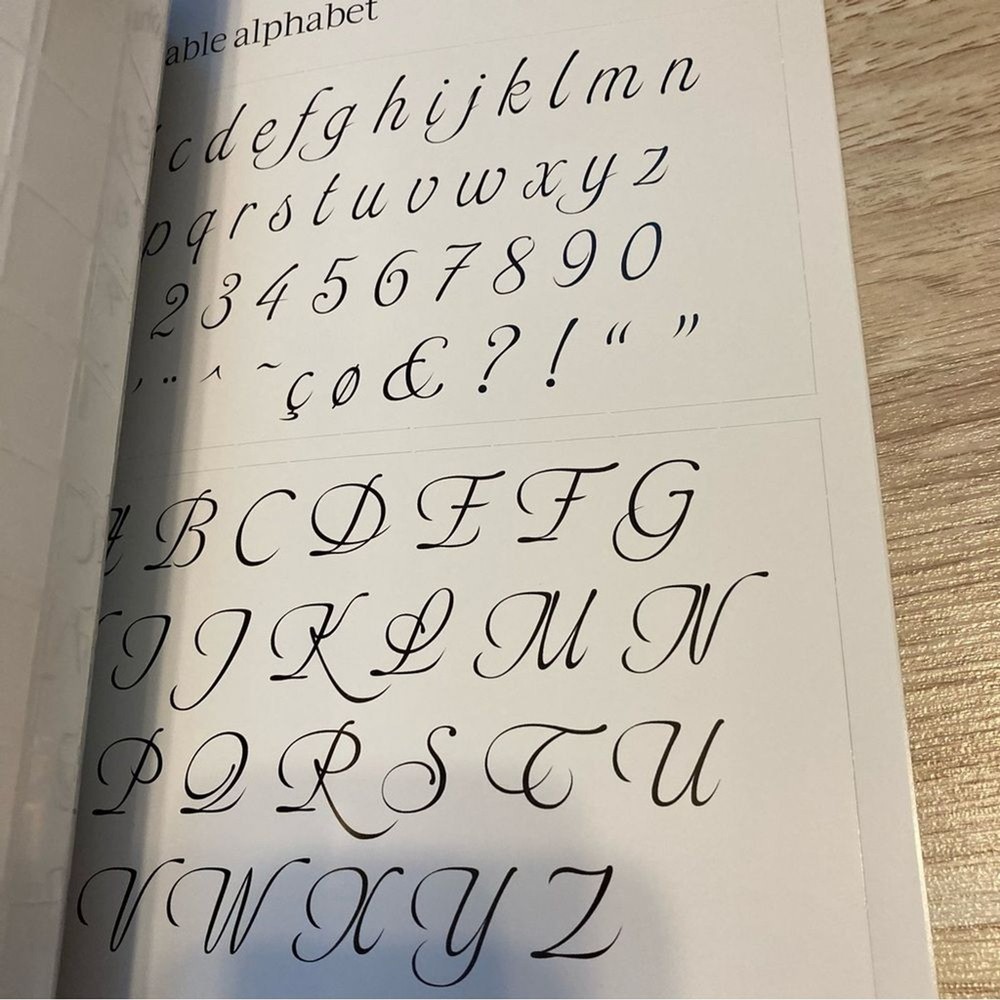 able alphabet
c d e f g h i j k l m n
p q r s t u v w x y z
2 3 4 5 6 7 8 9 0
´ ¨ ^ ~ ç ø & ? ! “ ”
A B C D E F G
I J K L M N
P Q R S T U
V W X Y Z